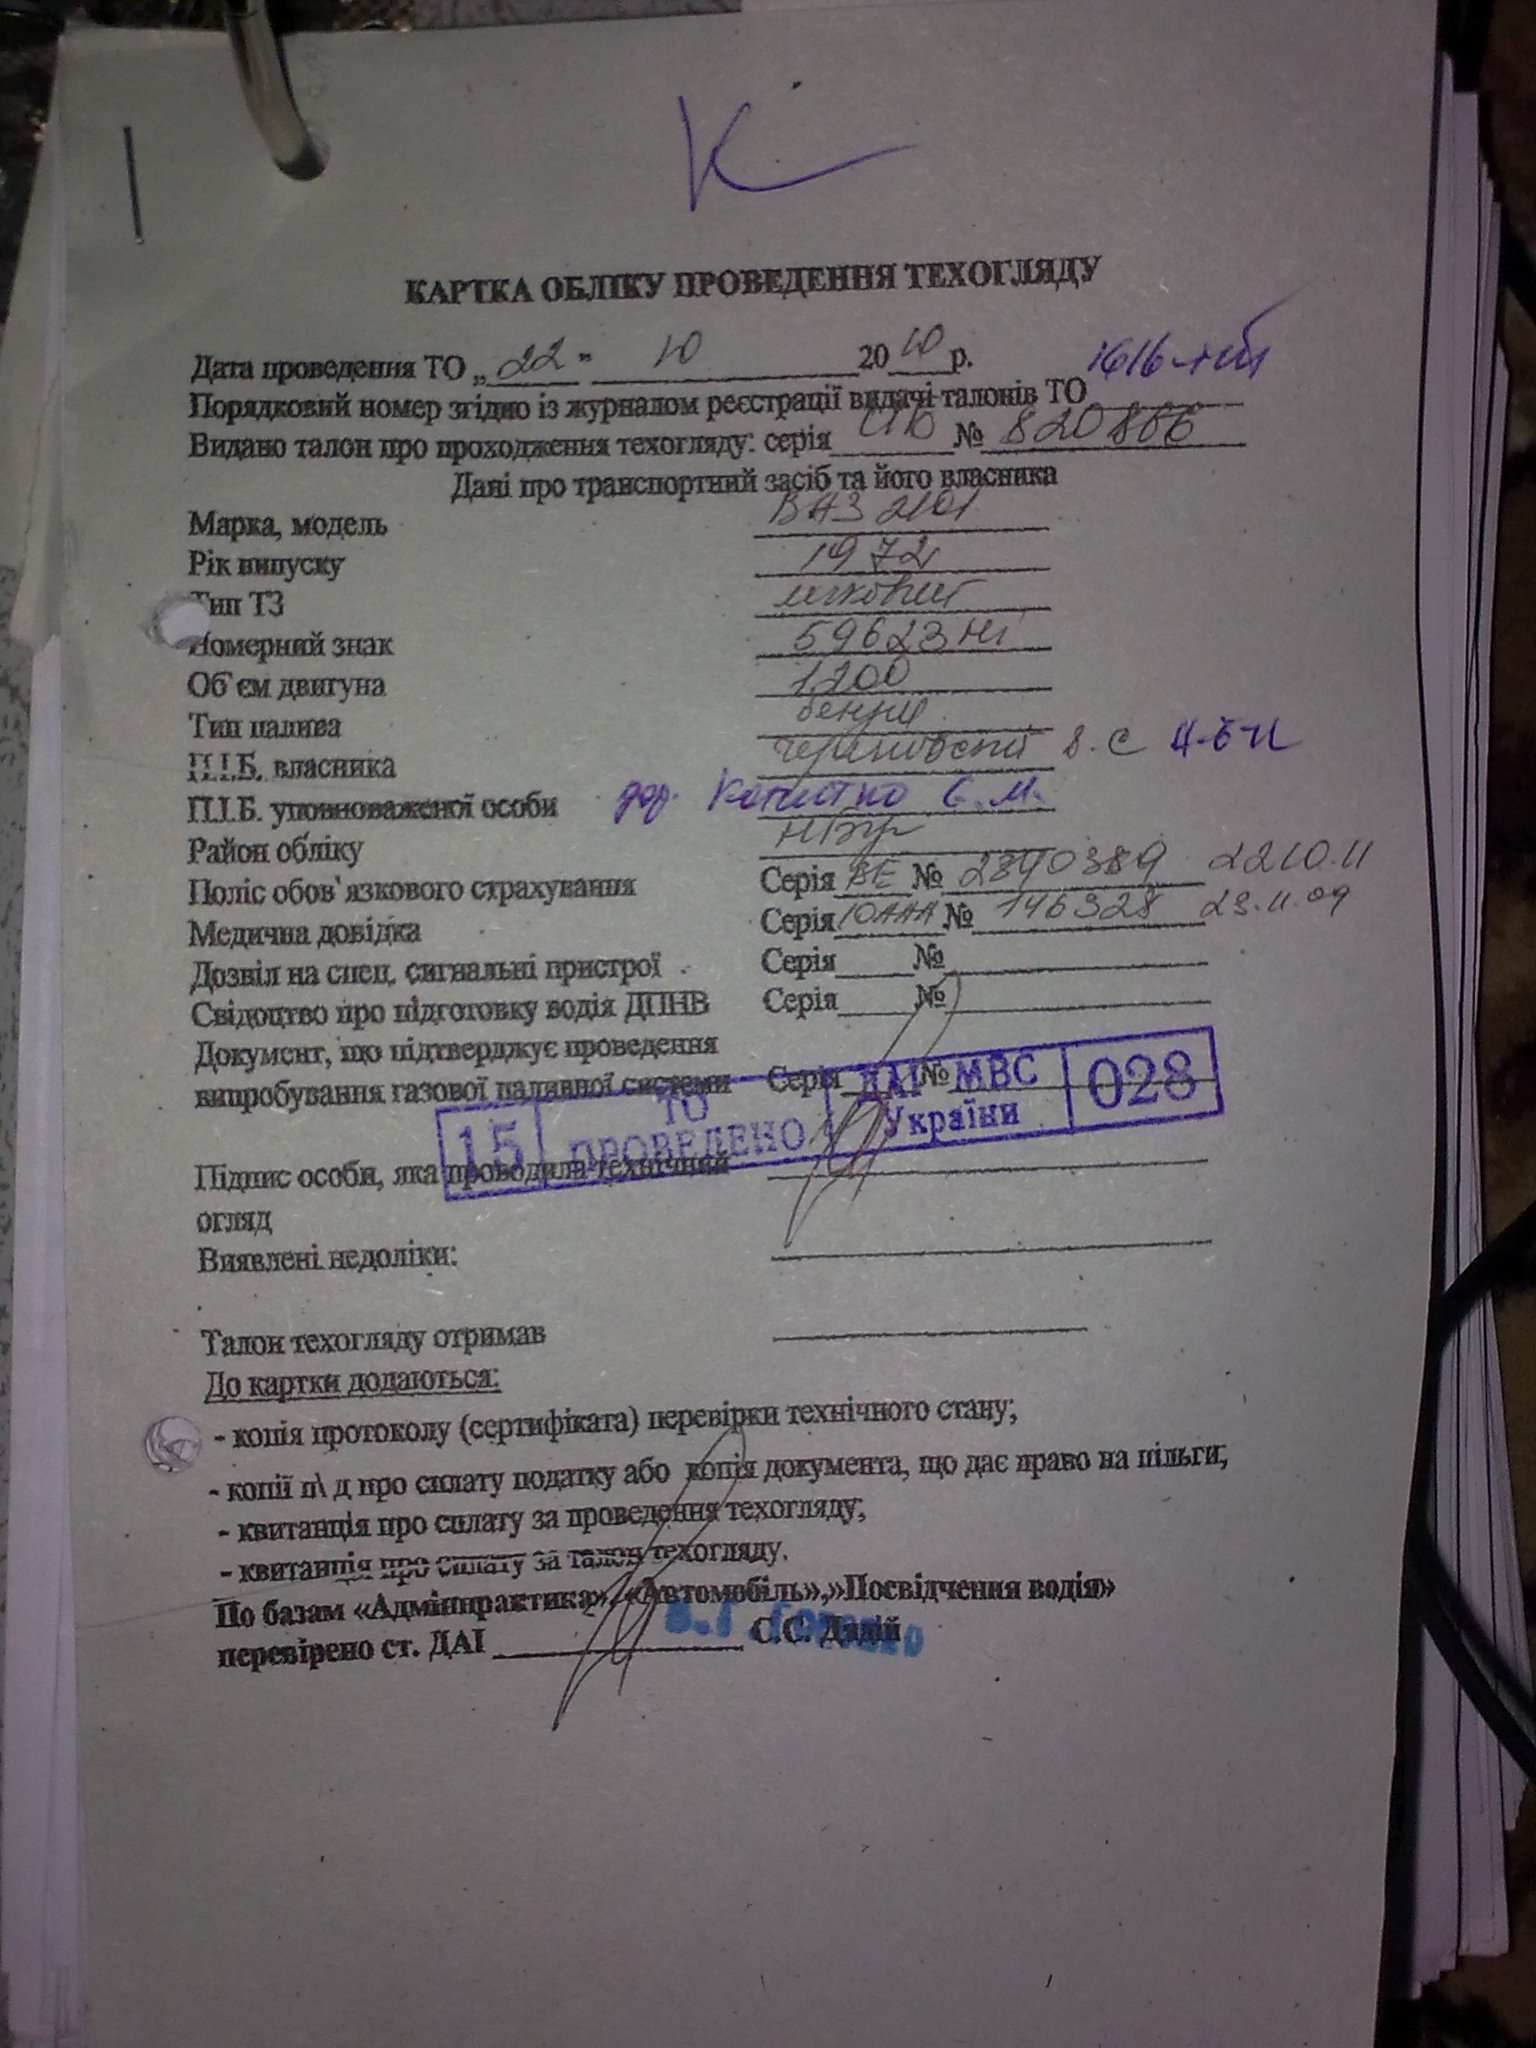 К
КАРТКА ОБЛІКУ ПРОВЕДЕННЯ ТЕХОГЛЯДУ
Дата проведення ТО „ 22 " 10 20 10 р.
Порядковий номер згідно із журналом реєстрації видачі талонів ТО 1616
Видано талон про проходження техогляду: серія № 820866
Дані про транспортний засіб та його власника
Марка, модель ВАЗ 2101
Рік випуску 1972
Тип ТЗ легковий
Номерний знак 59623 НІ
Об`єм двигуна 1200
Тип палива бензин
П.І.Б. власника 8.С
П.І.Б. уповноваженої особи дор. С.М.
Район обліку
Поліс обов`язкового страхування Серія ВЕ № 2890389 2210.11
Медична довідка Серія 10ААА № 146328 23.11.09
Дозвіл на спец. сигнальні пристрої Серія № 
Свідоцтво про підготовку водія ДПНВ Серія № 
Документ, що підтверджує проведення
випробування газової паливної системи Серія № 
15 ТО ПРОВЕДЕНО ДАІ МВС України 028
Підпис особи, яка проводила технічний
огляд
Виявлені недоліки:
Талон техогляду отримав
До картки додаються:
- копія протоколу (сертифіката) перевірки технічного стану;
- копії п\ д про сплату податку або копія документа, що дає право на пільги;
- квитанція про сплату за проведення техогляду;
- квитанція про сплату за талон техогляду.
По базам «Адмінпрактика», «Автомобіль»,»Посвідчення водія»
перевірено ст. ДАІ С.С. Дядій